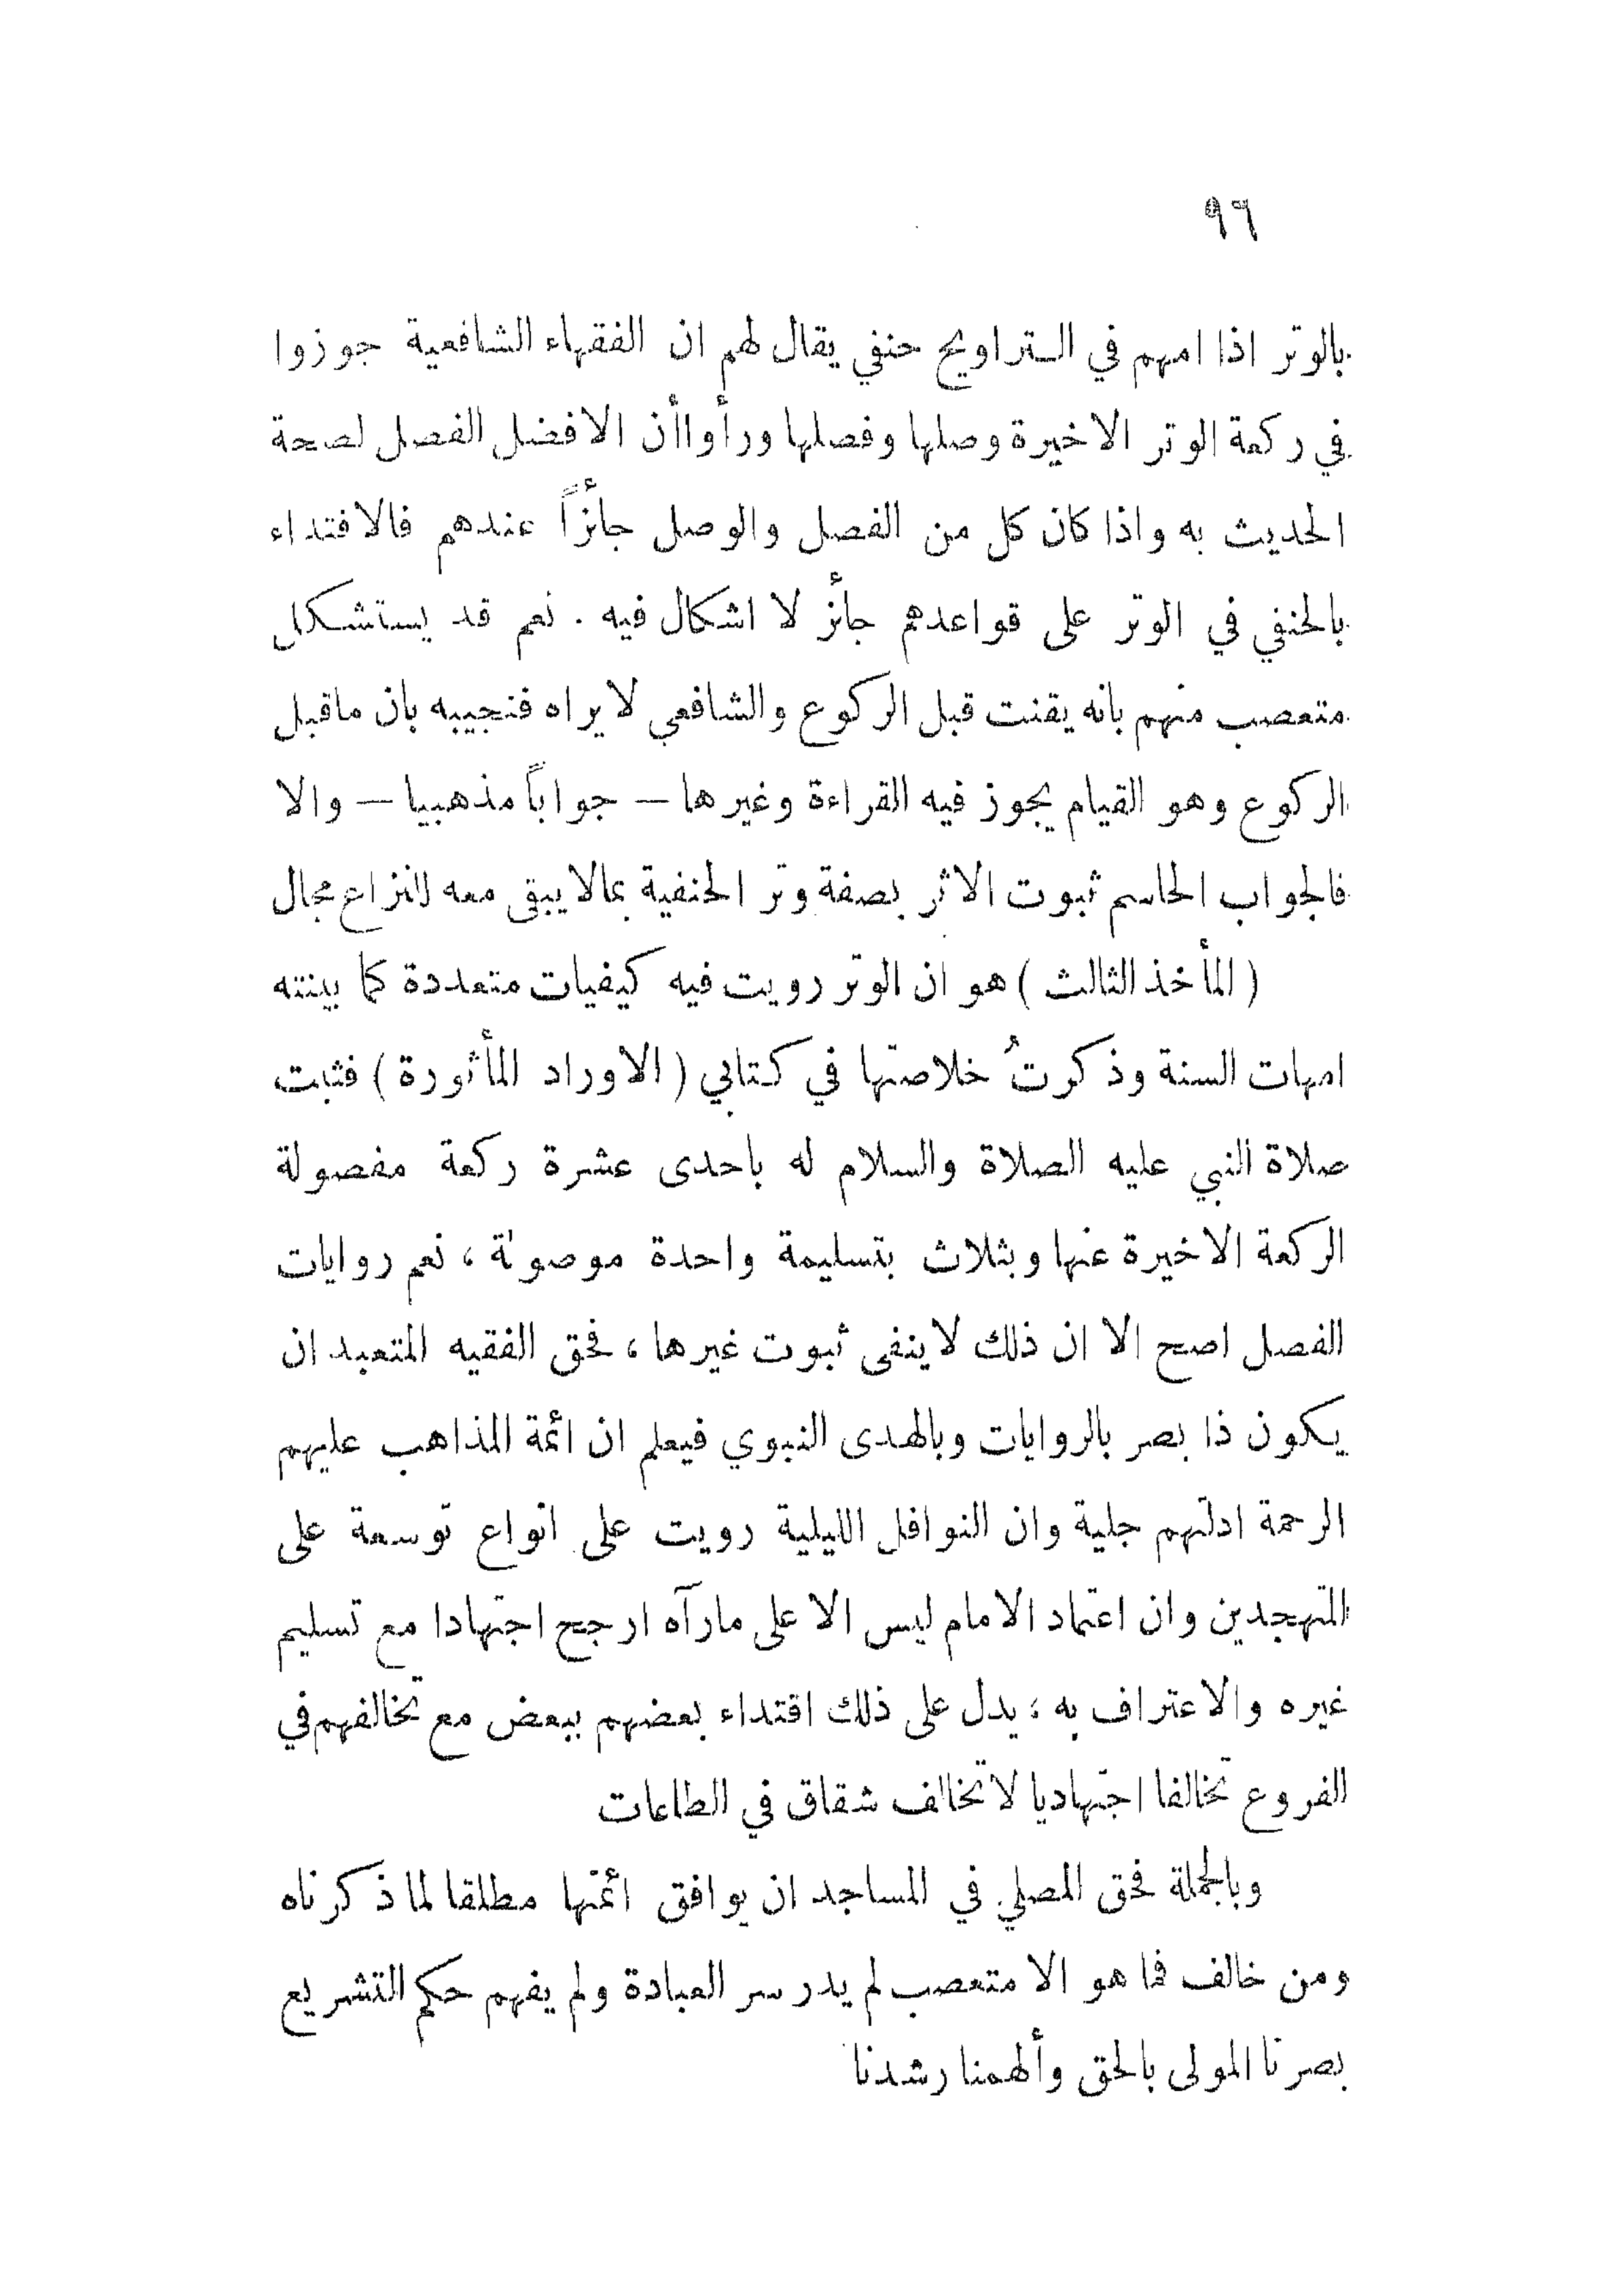 ٩٦
بالوتر اذا امهم في التراويح حنفي يقال لهم ان الفقهاء الشافعية جوزوا
في ركعة الوتر الاخيرة وصلها وفصلها ورأوا أن الافضل الفصل لصحة
الحديث به واذا كان كل من الفصل والوصل جائزاً عندهم فالاقتداء
بالحنفي في الوتر على قواعدهم جائز لا اشكال فيه . نعم قد يستشكل
متعصب منهم بانه يقنت قبل الركوع والشافعي لا يراه فنجيبه بان ماقبل
الركوع وهو القيام يجوز فيه القراءة وغيرها – جواباً مذهبيا – والا
فالجواب الحاسم ثبوت الاثر بصفة وتر الحنفية بمالا يبقى معه للنزاع مجال
( المأخذ الثالث ) هو ان الوتر رويت فيه كيفيات متعددة كما بينته
امهات السنة وذكرتُ خلاصتها في كتابي ( الاوراد المأثورة ) فثبت
صلاة النبي عليه الصلاة والسلام له باحدى عشرة ركعة مفصولة
الركعة الاخيرة عنها وبثلاث بتسليمة واحدة موصولة ، نعم روايات
الفصل اصح الا ان ذلك لا ينفى ثبوت غيرها ، فحق الفقيه المتعبد ان
يكون ذا بصر بالروايات وبالهدى النبوي فيعلم ان ائمة المذاهب عليهم
الرحمة ادلتهم جلية وان النوافل الليلية رويت على انواع توسعة على
المتهجدين وان اعتماد الامام ليس الا على مارآه ارجح اجتهادا مع تسليم
غيره والاعتراف به ، يدل على ذلك اقتداء بعضهم ببعض مع تخالفهم في
الفروع تخالفا اجتهاديا لا تخالف شقاق في الطاعات
وبالجملة فحق المصلي في المساجد ان يوافق ائمتها مطلقا لما ذكرناه
ومن خالف فما هو الا متعصب لم يدر سر العبادة ولم يفهم حكم التشريع
بصرنا المولى بالحق وألهمنا رشدنا